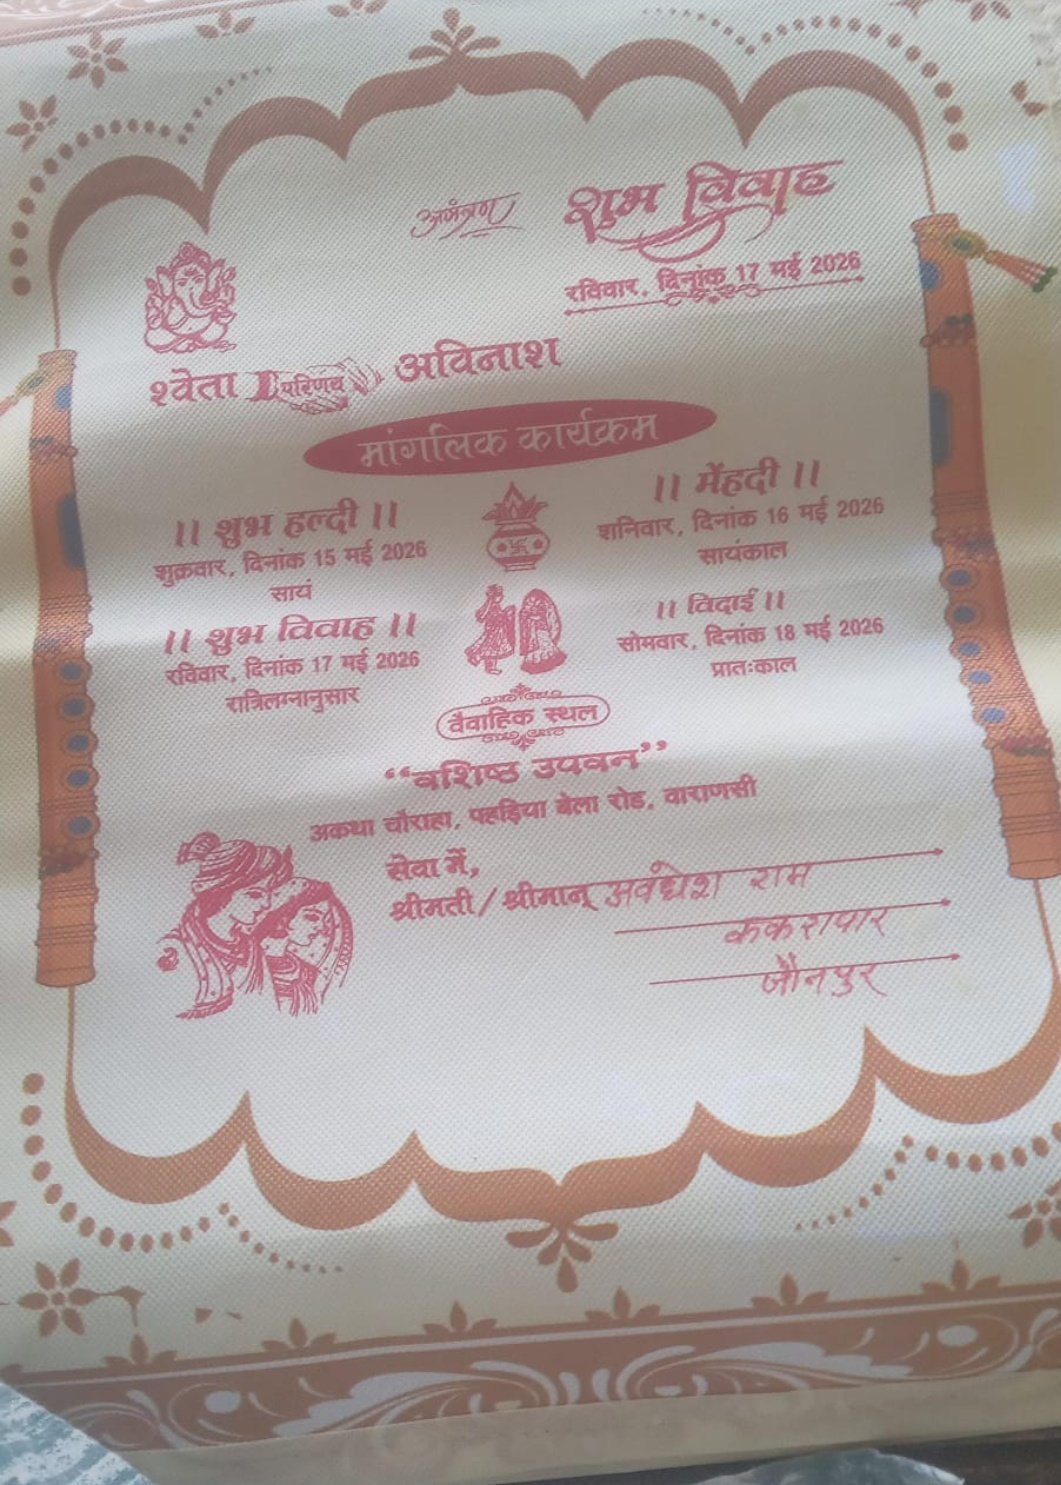 आमंत्रण
शुभ विवाह
रविवार, दिनांक 17 मई 2026
श्वेता परिणय अविनाश
मांगलिक कार्यक्रम
|| शुभ हल्दी ||
शुक्रवार, दिनांक 15 मई 2026
सायं
|| मेंहदी ||
शनिवार, दिनांक 16 मई 2026
सायंकाल
|| शुभ विवाह ||
रविवार, दिनांक 17 मई 2026
रात्रिलग्नानुसार
|| विदाई ||
सोमवार, दिनांक 18 मई 2026
प्रातःकाल
वैवाहिक स्थल
“वशिष्ठ उपवन”
अकथा चौराहा, पहड़िया बेला रोड, वाराणसी
सेवा में,
श्रीमती/श्रीमान् अवधेश राम
ककरापार
जौनपुर